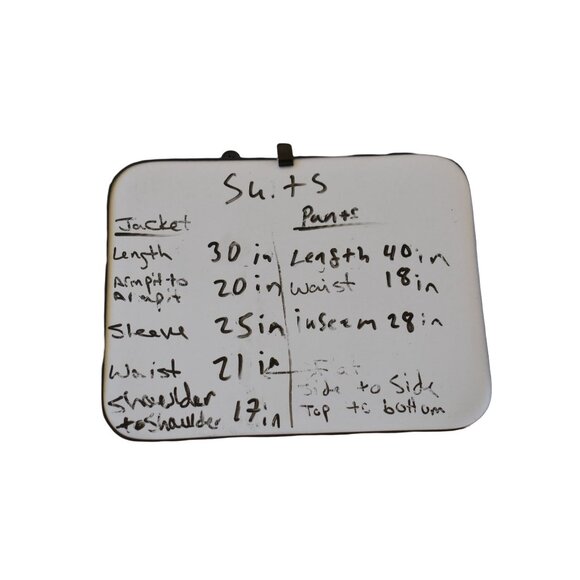 Suits
Jacket
Length 30 in
Armpit to
Armpit 20 in
Sleeve 25 in
Waist 21 in
Shoulder
to Shoulder 17 in
Pants
Length 40 in
Waist 18 in
inseem 28 in
Flat
Side to Side
Top to bottom